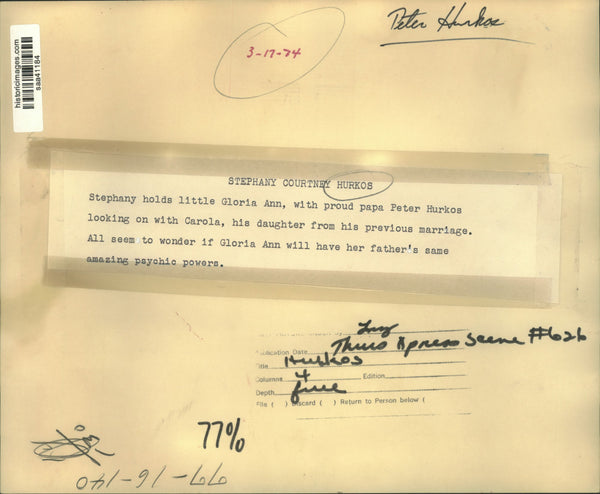 historicimages.com
saa41184
3-17-74
Peter Hurkos
STEPHANY COURTNEY HURKOS
Stephany holds little Gloria Ann, with proud papa Peter Hurkos
looking on with Carola, his daughter from his previous marriage.
All seem to wonder if Gloria Ann will have her father's same
amazing psychic powers.
Publication Date Thurs Xpress Scene #626
Title Hurkos
Columns 4 Edition
Depth
File ( ) Discard ( ) Return to Person below (
77%